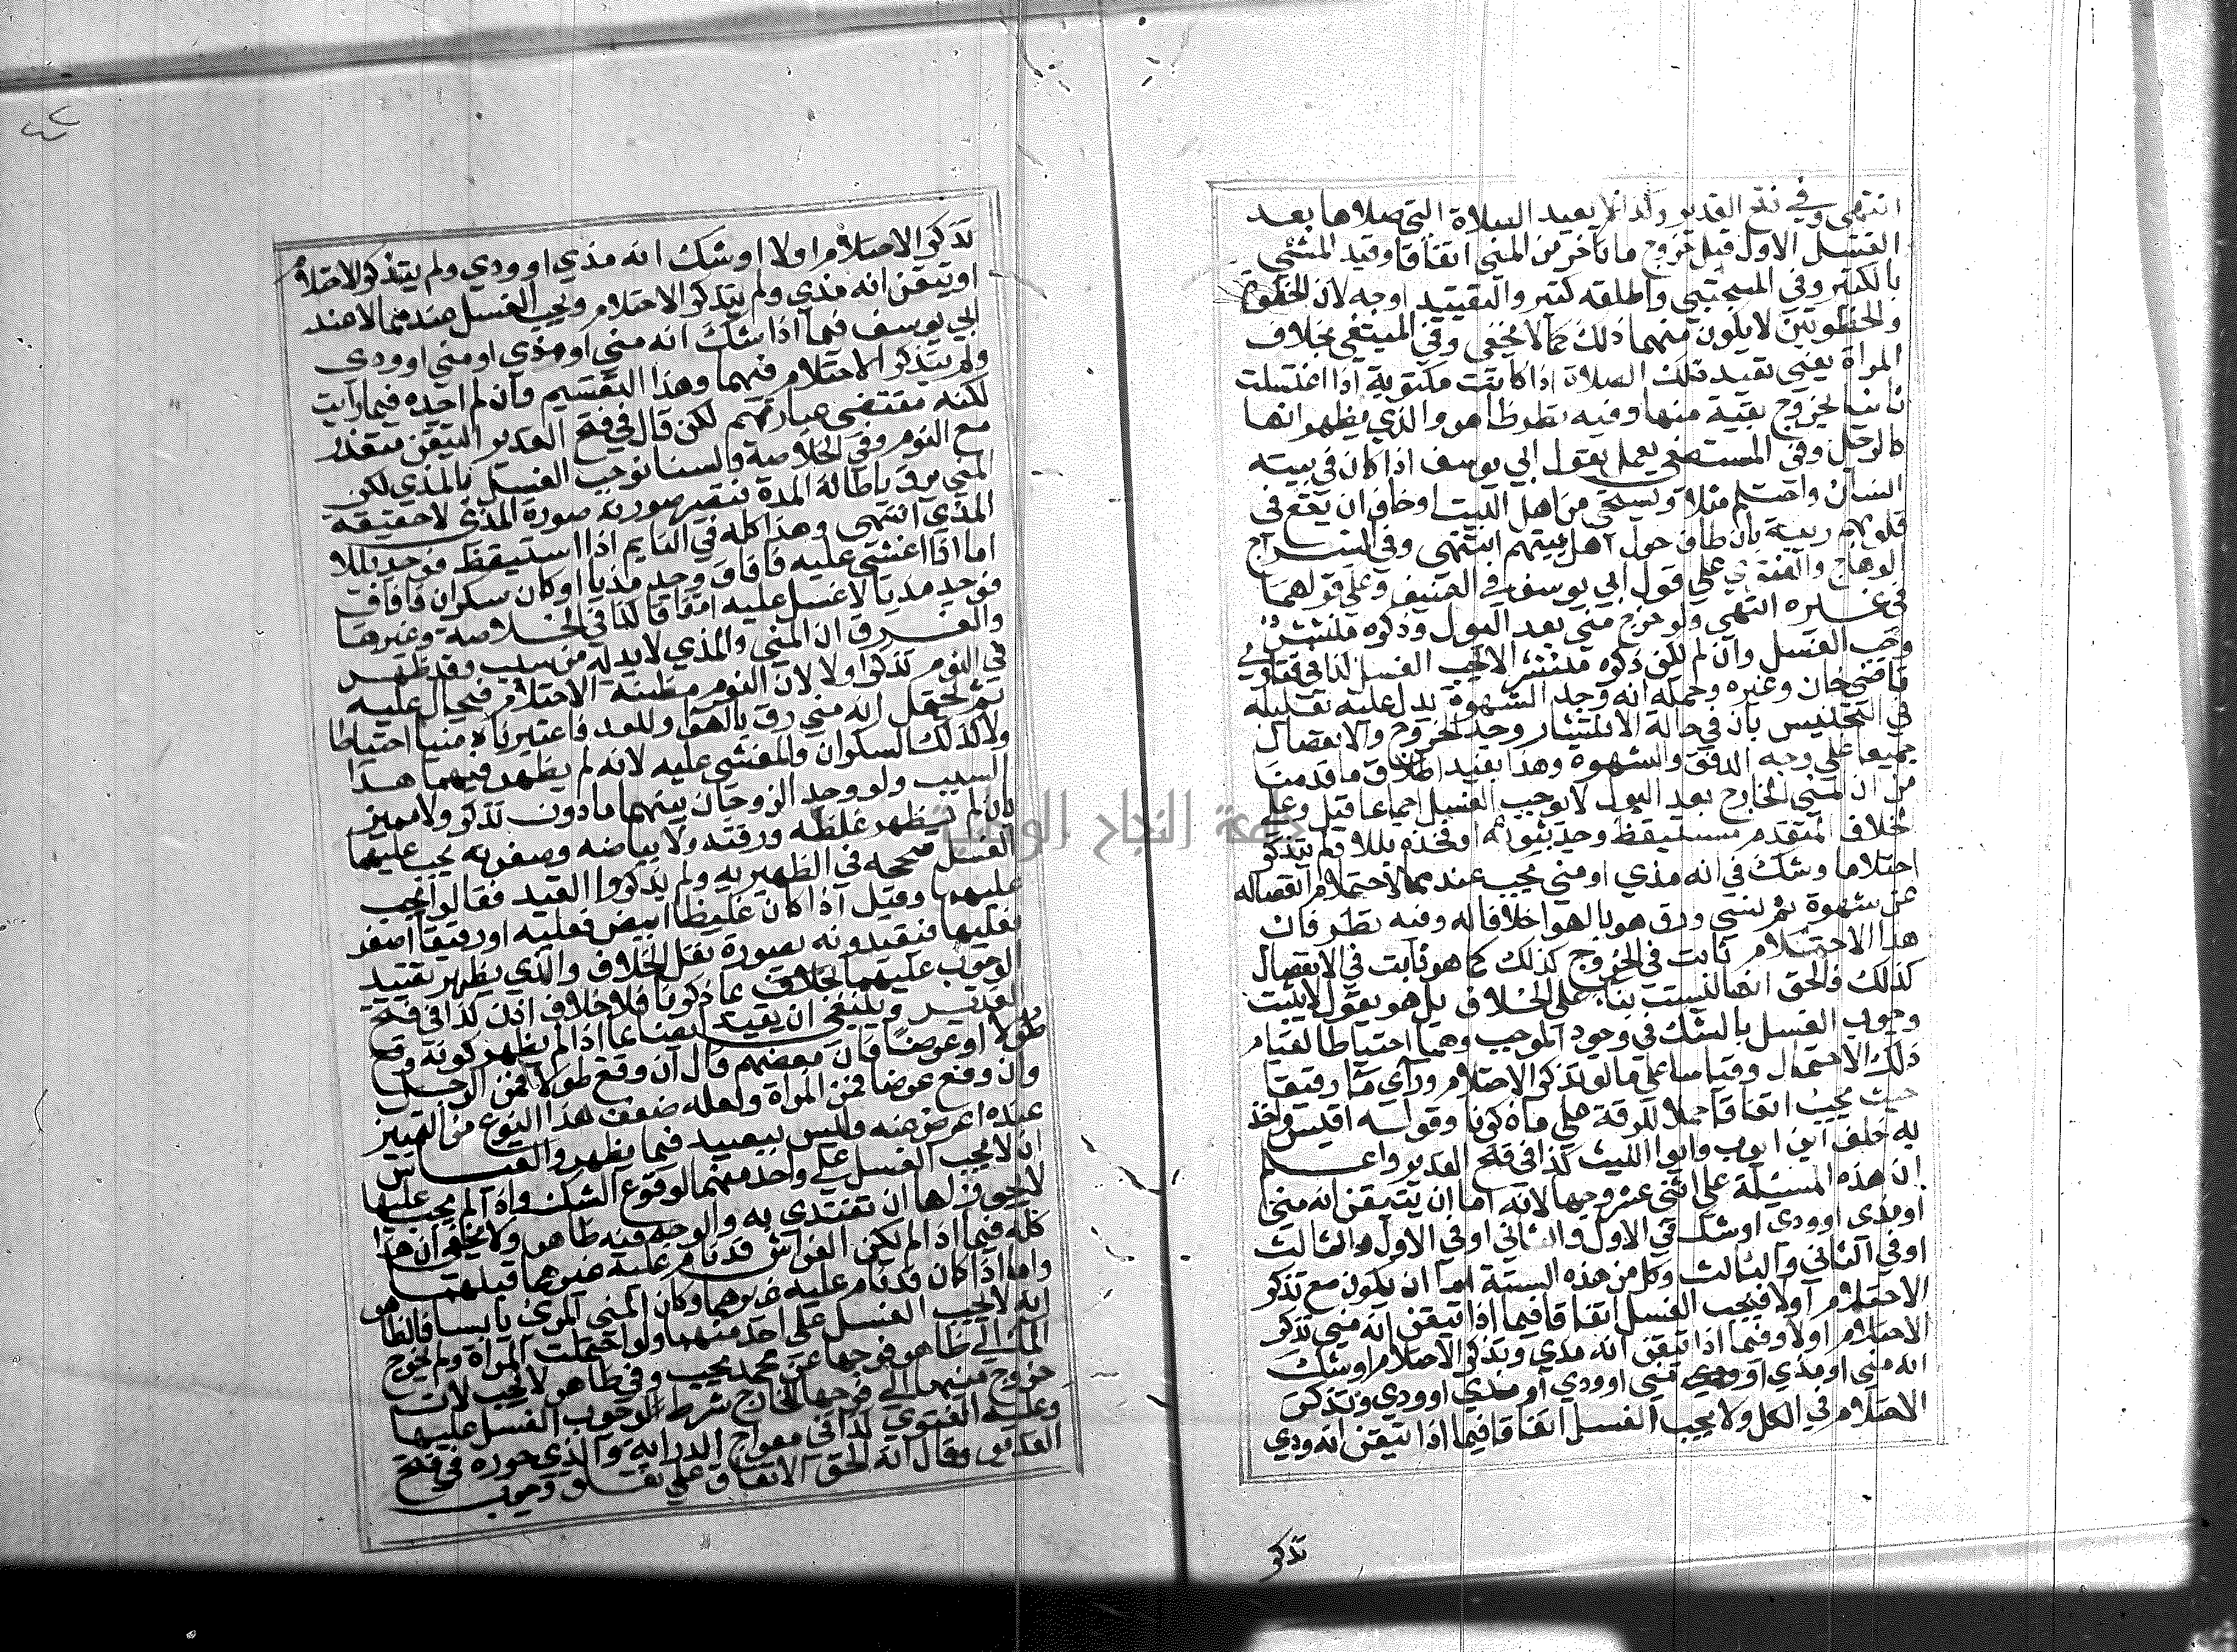 انتهى وفي فتح القدير وكذا لا يعيد الصلاة التي صلاها بعد
الغسل الاول قبل خروج ما تاخر من المني اتفاقا وقيد المشي
بالكثير وفي المجتبى واطلقه كثير والتقييد اوجه لان الخطوة
والخطوتين لا يكون منهما ذلك كما لا يخفى وفي المبتغى بخلاف
المراة يعني تعيد تلك الصلاة اذا كانت مكتوبة اذا اغتسلت
ثانيا لخروج بقية منها وفيه نظر ظاهر والذي يظهر انها
كالرجل وفي المستصفى يعمل بقول ابي يوسف اذا كان في بيته
انسان واحتلم مثلا ويستحي من اهل البيت او خاف ان يقع في
قلوبهم ريبة بان طاف حول اهل بيتهم انتهى وفي السراج
الوهاج والفتوى على قول ابي يوسف في الضيف وعلى قولهما
في غيره انتهى ولو خرج مني بعد البول وذكره منتشر
وجب الغسل وان لم يكن ذكره منتشر الا يجب الغسل كذا في فتاوي
قاضي خان وغيره وحمله انه وجد الشهوة يدل عليه تعليله
في التجنيس بان في حالة الانتشار وجد الخروج والانفصال
جميعا على وجه الدفق والشهوة وهذا يفيد اطلاق ما قدمنا
من ان المني الخارج بعد البول لا يوجب الغسل اجماعا قيل وعلى
الخلاف المتقدم مستيقظ وجد بثوبه او فخذه بللا ولم يتذكر
احتلاما وشك في انه مذي او مني يجب عندهما لاحتمال انفصاله
عن شهوة ثم نسي ورق هو بالهوا خلافا له وفيه نظر فان
هذا الاحتمال ثابت في الخروج كذلك كما هو ثابت في الانفصال
كذلك فالحق انها ليست بناء على الخلاف بل هو يقول لا يثبت
وجوب الغسل بالشك في وجود الموجب وهما احتياطا لقيام
ذلك الاحتمال وقياسا على ما لو تذكر الاحتلام وراي ماء رقيقا
حيث يجب اتفاقا حملا للرقة على ما ذكرنا وقوله اقيس واخذ
به خلف ابن ايوب وابو الليث كذا في فتح القدير واعلم
ان هذه المسئلة على اثني عشر وجها لانه اما ان يتيقن انه مني
او مذي او ودي او شك في الاول والثاني او في الاول والثالث
او في الثاني والثالث وكل من هذه الستة اما ان يكون مع تذكر
الاحتلام او لا فيجب الغسل اتفاقا فيما اذا تيقن انه مني تذكر
الاحتلام او لا وفيما اذا تيقن انه مذي وتذكر الاحتلام او شك
انه مني او مذي او مني او ودي او مذي او ودي وتذكر
الاحتلام في الكل ولا يجب الغسل اتفاقا فيما اذا تيقن انه ودي
تذكر
تذكر الاحتلام او لا او شك انه مذي او ودي ولم يتذكر الاحتلام
او تيقن انه مذي ولم يتذكر الاحتلام ويجب الغسل عندهما لا عند
ابي يوسف فيما اذا شك انه مني او مذي او مني او ودي
ولم يتذكر الاحتلام فيهما وهذا التقسيم وان لم اجده فيما رايت
لكنه مقتضى عبارتهم لكن قال في فتح القدير التيقن متعذر
مع النوم وفي الخلاصة ولسنا نوجب الغسل بالمذي لكن
المني يرق باطالة المدة فتصير صورته صورة المذي لا حقيقة
المذي انتهى وهذا كله في النايم اذا استيقظ فوجد بللا
اما اذا اغشي عليه فافاق وجد مذيا او كان سكران فافاق
فوجد مذيا لا غسل عليه اتفاقا كذا في الخلاصة وغيرها
والفرق ان المني والمذي لا بد له من سبب وقد ظهر
في النوم تذكر او لا لان النوم مظنة الاحتلام فيحال عليه
ثم يحتمل انه مني رق بالهوا وللعد فاعتبرناه منيا احتياطا
ولا كذلك السكران والمغشي عليه لانه لم يظهر فيهما هذا
السبب ولو وجد الزوجان بينهما ما دون تذكر ولا مميز
بان لم يظهر غلظه ورقته ولا بياضه وصفرته يجب عليهما
الغسل صححه في الظهيريه ولم يذكروا القيد فقالوا يجب
عليهما وقيل اذا كان غليظا ابيض فعليه او رقيقا اصفر
فعليها فيقيدونه بصورة نقل الخلاف والذي يظهر تقييد
الوجوب عليهما بخلاف عما ذكرنا فلا خلاف اذن كذا في فتح
القدير وينبغي ان يقيد ايضا بما اذا لم يظهر كونه وقع
طولا او عرضا فان بعضهم قال ان وقع طولا فمن الرجل
وان وقع عرضا فمن المراة ولعله ضعف هذا النوع من التمييز
عنده اعرض عنه وليس ببعيد فيما يظهر والقياس
ان لا يجب الغسل على واحد منهما لوقوع الشك واذا لم يجب عليها
لا يجوز لها ان تقتدي به والوجه فيه ظاهر ولا يخفى ان هذا
كله فيما اذا لم يكن الفراش قد نام عليه غيرهما قبلهما
واما اذا كان قد نام عليه غيرهما وكان المني المرئ يابسا فالظاهر
انه لا يجب الغسل على احد منهما ولو احتملت المراة ولم يخرج
الماء الى ظاهر فرجها عن محمد يجب وفي ظاهر لا يجب لان
خروج منيها الى فرجها الخارج شرط لوجوب الغسل عليها
وعليه الفتوى كذا في معراج الدراية والذي حرره في فتح
القدير وقال انه الحق الاتفاق على تعلق وجوب
جامعة النجاح الوطنية